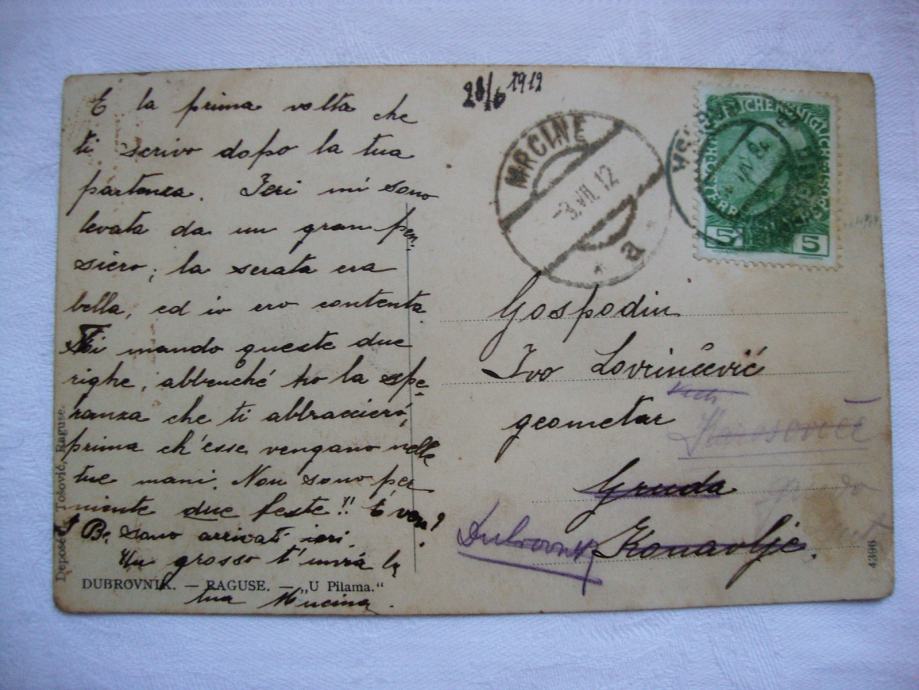 28/6 1912
E la prima volta che
ti scrivo dopo la tua
partenza. Ieri mi sono
levata da un gran pen-
siero; la serata era
bella, ed io ero contenta.
Ti mando queste due
righe, abbenché ho la spe-
ranza che ti abbraccierò,
prima ch'esse vengano nelle
tue mani. Non sono per
niente due feste!! È vero?
sono arrivati ieri.
Un grosso t'invia la
tua
DUBROVNIK. — RAGUSE. — „U Pilama."
Tošović, Raguse.
MRCINE
3.VII.12
a
5 5
Gospodin
Ivo Lovrinčević
geometar
Gruda
Konavlje.
Dubrovnik
4396